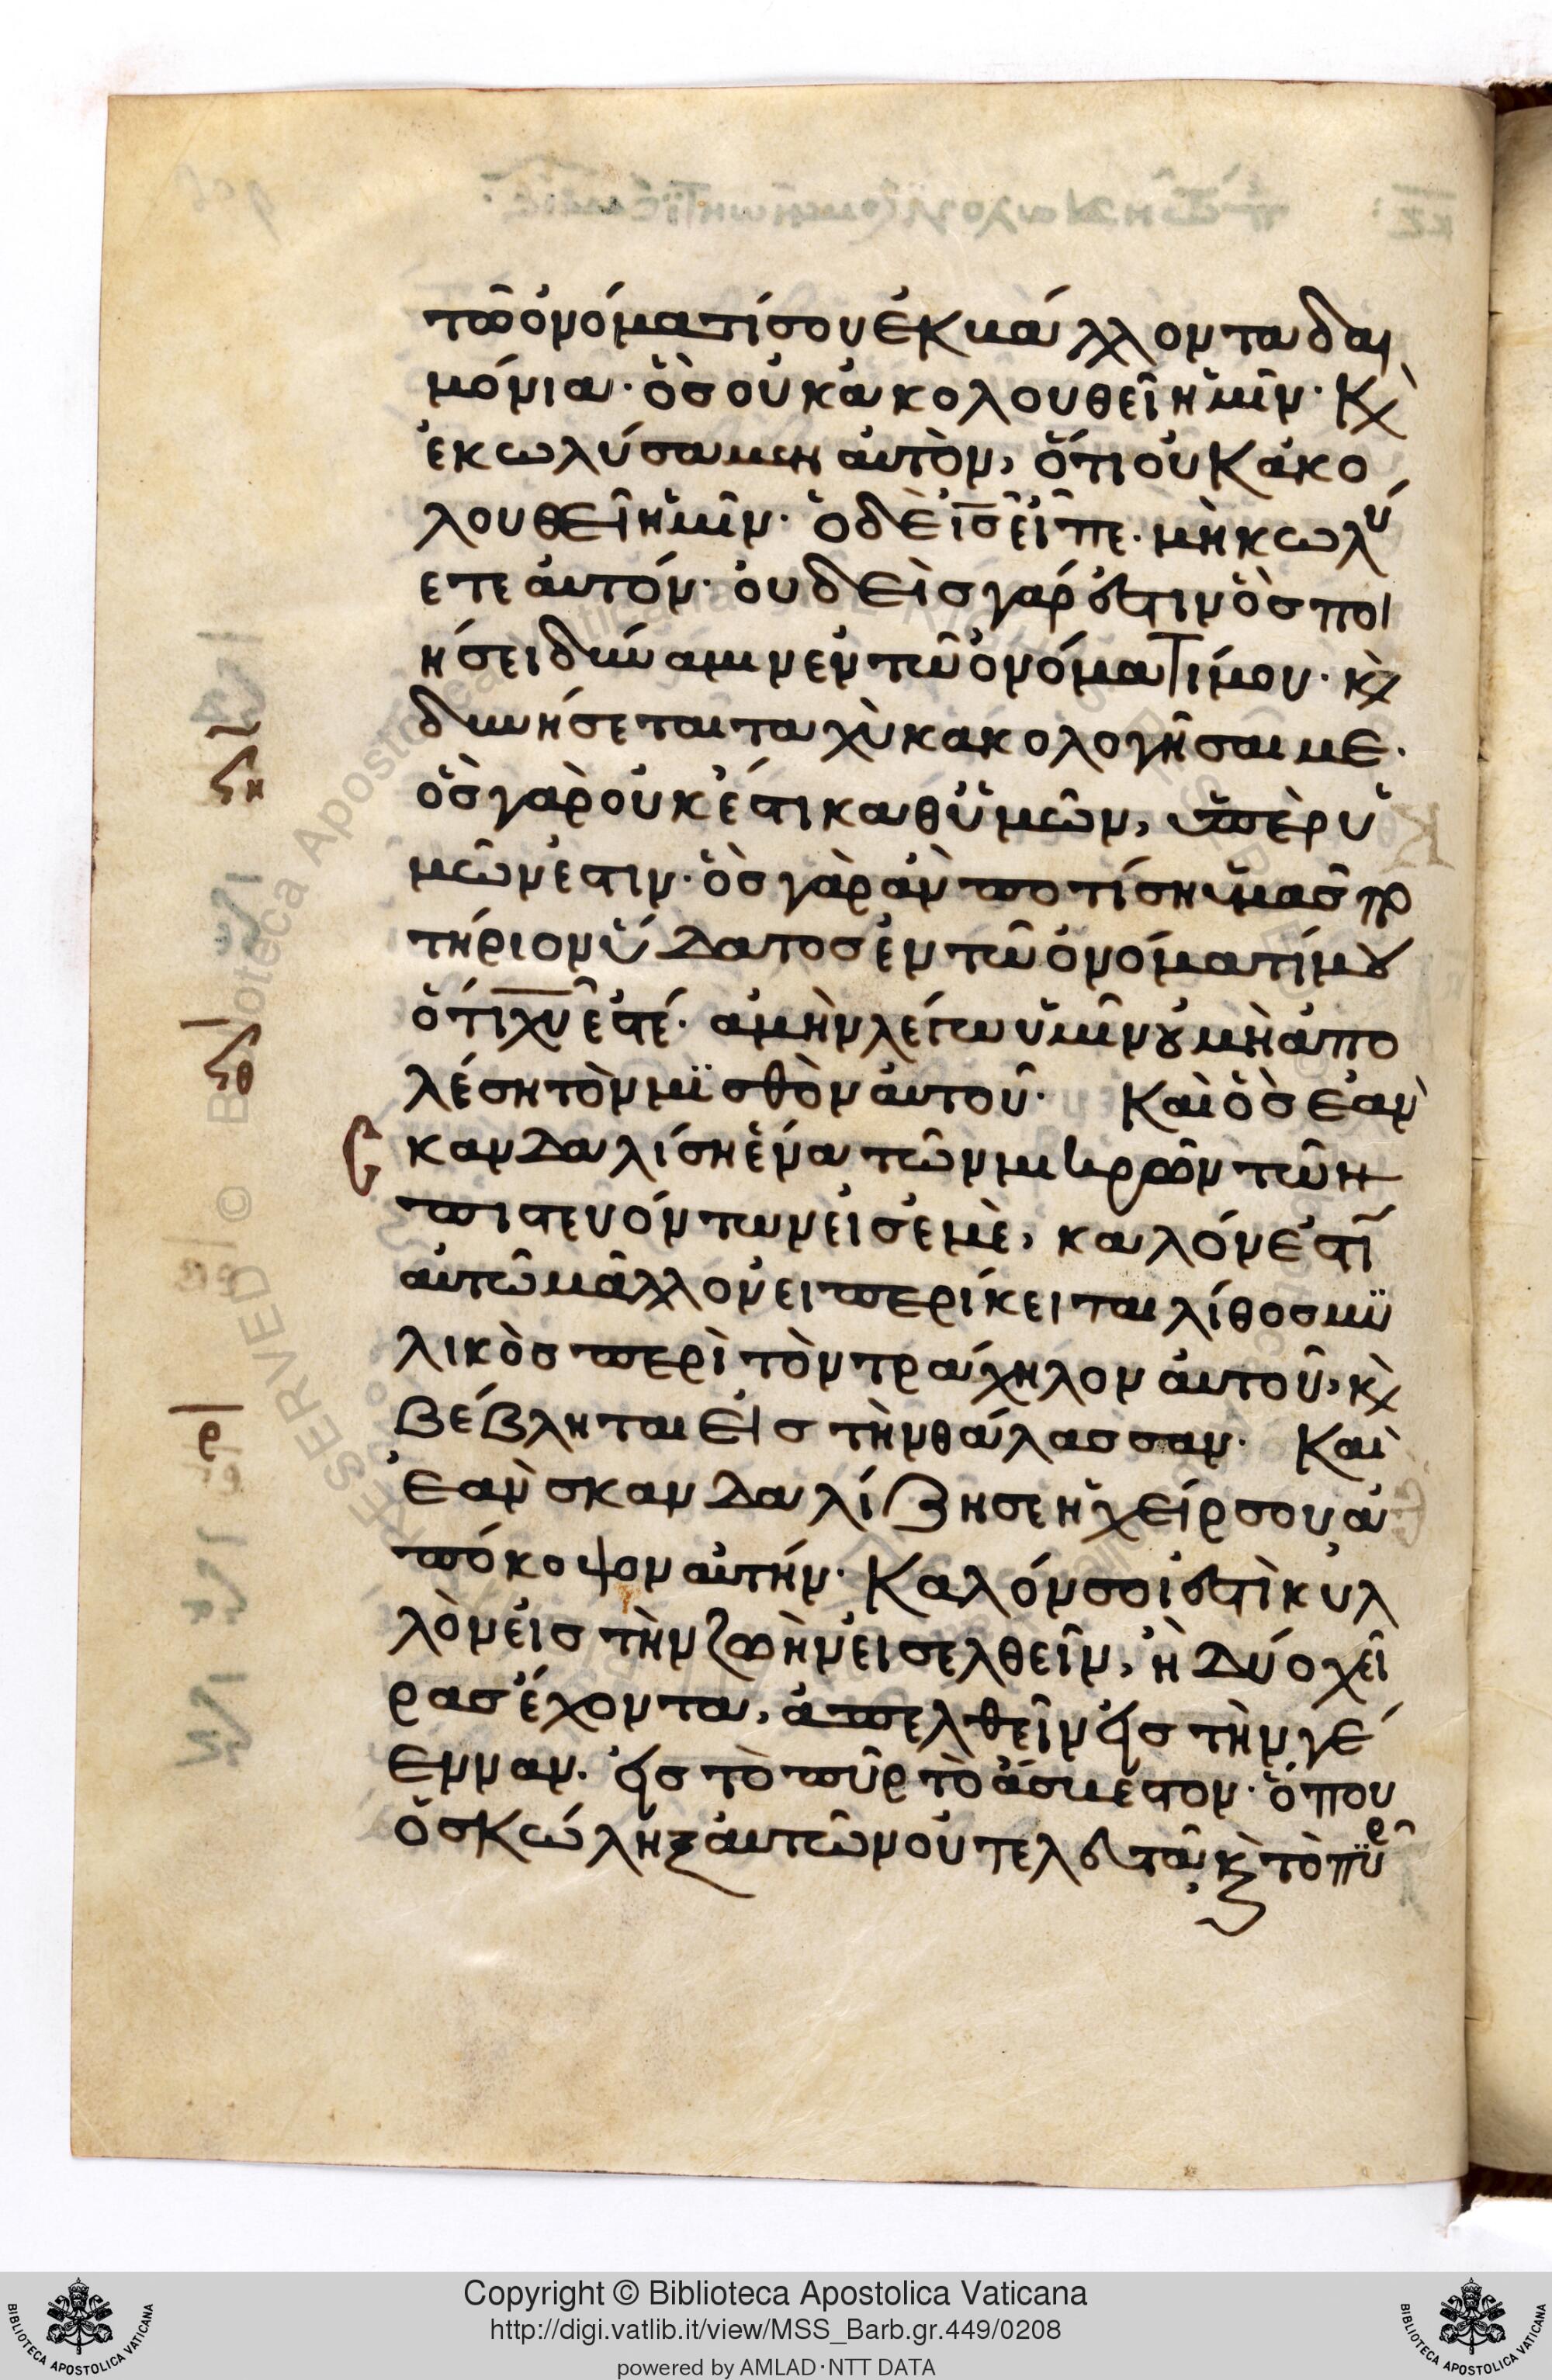 τῶ ὀνόματί σου ἐκβάλλοντα δαι
μόνια· ὃς οὐκ ἀκολουθεῖ ἡμῖν· κ(αὶ)
ἐκωλύσαμεν αὐτὸν, ὅτι οὐκ ἀκο
λουθεῖ ἡμῖν· ὁ δὲ ις εἶπε· μὴ κωλύ
ετε αὐτόν· οὐδεὶς γάρ ἐστιν ὃς ποι
ήσει δύναμιν ἐν τῶ ὀνόματί μου· κ(αὶ)
δυνήσεται ταχὺ κακολογῆσαι με·
ὃς γὰρ οὐκ ἔστι καθ ὑμῶν, ὑπὲρ ὑ
μῶν ἐστιν· ὃς γὰρ ἂν ποτίση ὑμᾶς πο
τήριον ὕδατος ἐν τῶ ὀνόματί μου
ὅτι χυ ἐστέ· ἀμὴν λέγω ὑμῖν οὐ μὴ ἀπο
λέση τὸν μϊσθὸν αὐτοῦ· Καὶ ὃς ἐὰν
σκανδαλίση ἕνα τῶν μικρῶν τῶν
πιστευόντων εἰς ἐμὲ, καλόν ἐστῖ
αὐτῶ μᾶλλον εἰ περίκειται λίθος μϋ
λικὸς περὶ τὸν τράχηλον αὐτοῦ, κ(αὶ)
βέβληται εἰς τὴν θάλασσαν· Καὶ
ἐὰν σκανδαλίζη σε ἡ χείρ σου ἀ
πόκοψον αὐτήν· Καλόν σοί ἐστὶ κυλ
λὸν εἰς τὴν ζωὴν εἰσελθεῖν, ἢ δύο χεῖ
ρας ἔχοντα, ἀπελθεῖν εἰς τὴν γέ
ενναν. εἰς τὸ πῦρ τὸ ἄσβεστον· ὅπου
ὁ σκώληξ αὐτῶν οὐ τελευτᾶ κ(αὶ) τὸ πῦρ
ϟη
ϟθ
ρ
Copyright © Biblioteca Apostolica Vaticana
http://digi.vatlib.it/view/MSS_Barb.gr.449/0208
powered by AMLAD·NTT DATA
BIBLIOTECA APOSTOLICA VATICANA
BIBLIOTECA APOSTOLICA VATICANA